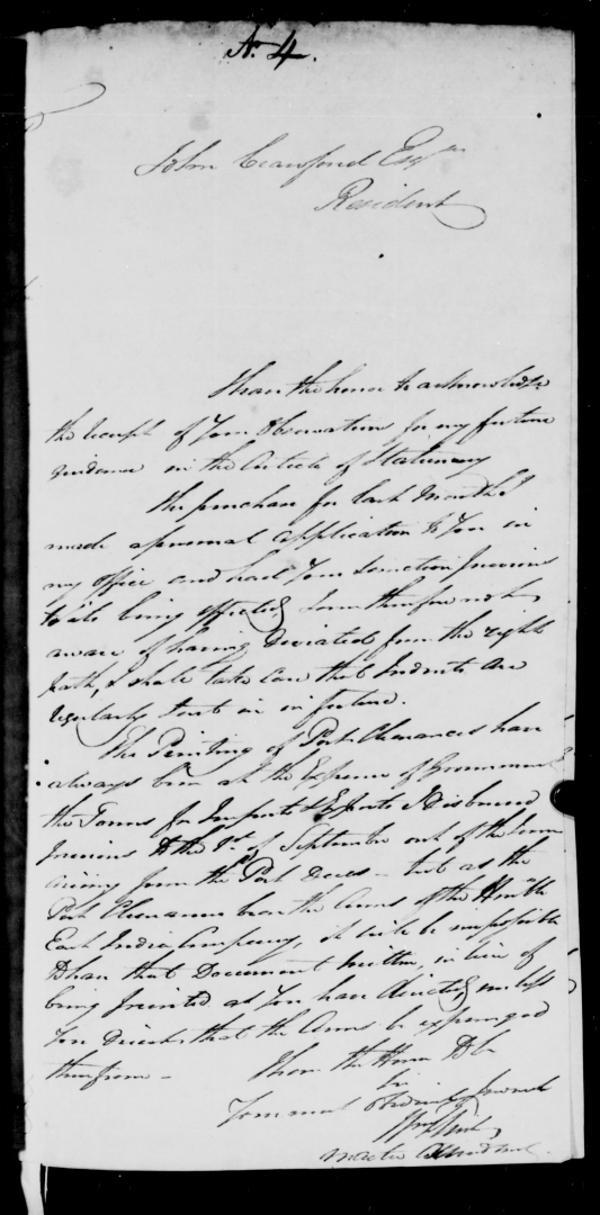 No. 4.
John Crawfurd Esqre
Resident
I have the honor to acknowledge
the receipt of Your Observations for my future
guidance in the Article of Stationery
The purchase for last Month I
made a personal application to You in
my office and had Your Sanction previous
to its being effected, I am therefore not
aware of having deviated from the right
path, I shall take care that Indents are
regularly sent in in future.
The Printing of Port Clearances have
always been at the Expence of Government
the Forms for Imports & Exports I disbursed
previous to the 1st of September out of the Sums
arising from the Port Dues - but as the
Port Clearances bear the Arms of the Honble
East India Company, it will be impossible
to have that Document written, in lieu of
being printed as You have directed, unless
You direct that the Arms be expunged
therefrom -
I have the Honor to be
Sir
Your most Obedient Servant
Master Attendant